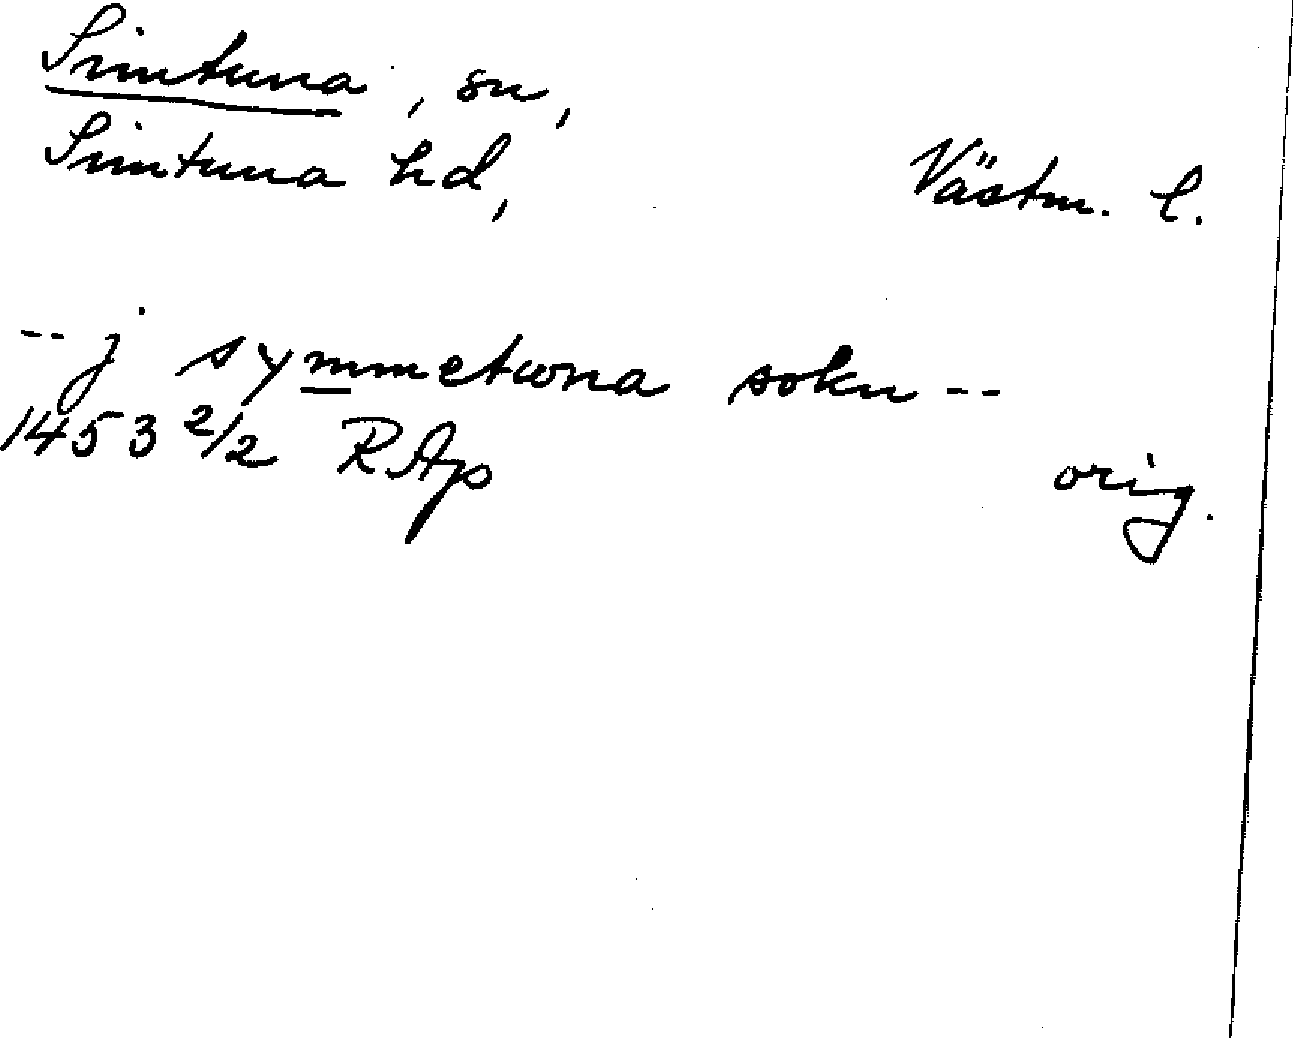 Simtuna, sn,
Simtuna hd,
Västm. l.
-- j symmetwna sokn --
1453 2/2 RAp
orig.